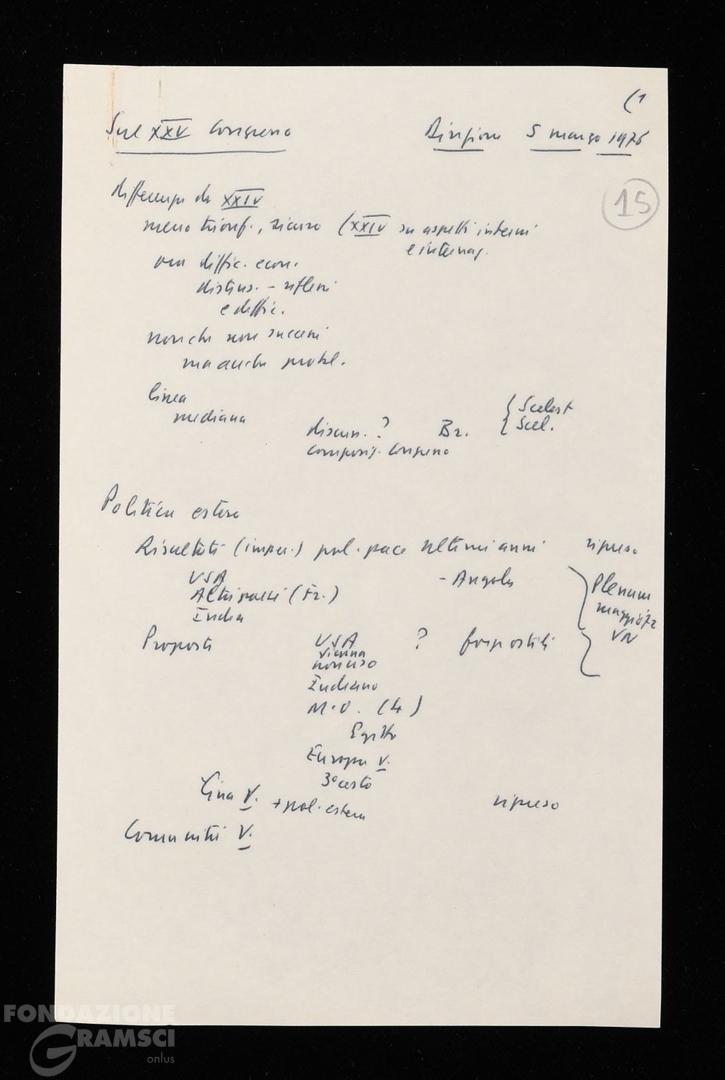 (1
Sul XXV Congresso Direzione 5 marzo 1976
15
differenze da XXIV
meno trionf., sicuro (XXIV su aspetti interni
e internaz.
ora diffic. econ.
distens. - riflessi
e diffic.
non che non successi
ma anche probl.
linea
mediana
discuss. ? Br. { Scelest
{ Scel.
composiz. Congresso
Politica estera
Risultati (imper.) pol. pace ultimi anni ripreso
USA - Angola
Altri paesi (Fr.) Plenum
India maggio 72
VN
Proposte USA ?
Vienna
non uso
Indiano
M.O. (4)
Egitto
Europa V.
3° cesto
Cina V. + pol. estera ripreso
Comunisti V.
FONDAZIONE
GRAMSCI
onlus